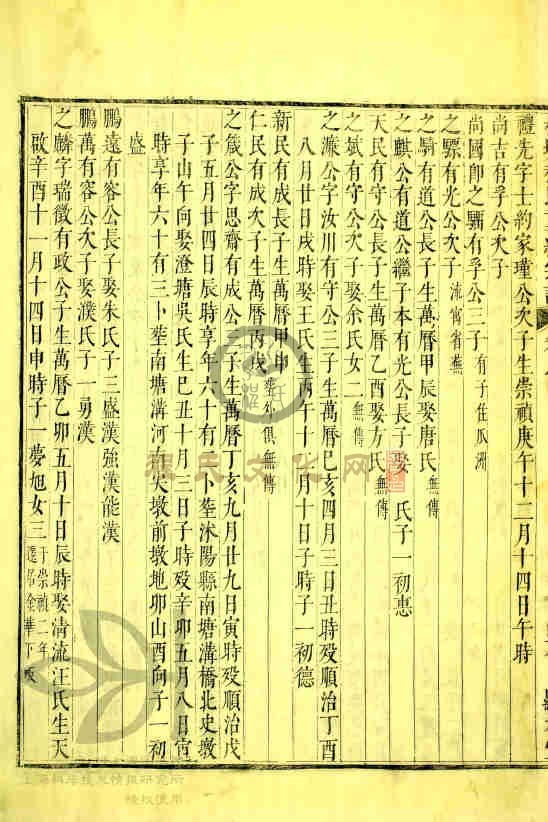 禮先字士約家瑾公次子生崇禎庚午十二月十四日午時
尚吉有孚公次子
尚國卽之驪有孚公三子有子住瓜洲
之驃有光公次子流寓省蕪
之騎有道公長子生萬曆甲辰娶唐氏無傳
之麒公有道公繼子本有光公長子娶 氏子一初惠
天民有守公長子生萬曆乙酉娶方氏無傳
之斌有守公次子娶余氏女二無傳
之濂公字汝川有守公三子生萬曆巳亥四月三日丑時殁順治丁酉
八月廿日戌時娶王氏生丙午十一月十日子時子一初德
新民有成長子生萬曆甲申
仁民有成次子生萬曆丙戌葬外俱無傳
之箴公字思齋有成公三子生萬曆丁亥九月廿九日寅時殁順治戊
子五月廿四日辰時享年六十有二卜塟沭陽縣南塘溝橋北史墩
子山午向娶澄塘吳氏生巳丑十月三日子時殁辛卯五月八日寅
時享年六十有三卜塟南塘溝河南尖墩前墩地卯山酉向子一初
盛
鵬遠有容公長子娶朱氏子三盛漢強漢能漢
鵬萬有容公次子娶濮氏子一勇漢
之麟字瑞徵有政公子生萬曆乙卯五月十日辰時娶清流汪氏生天
啟辛酉十一月十四日申時子一夢旭女三于崇禎二年